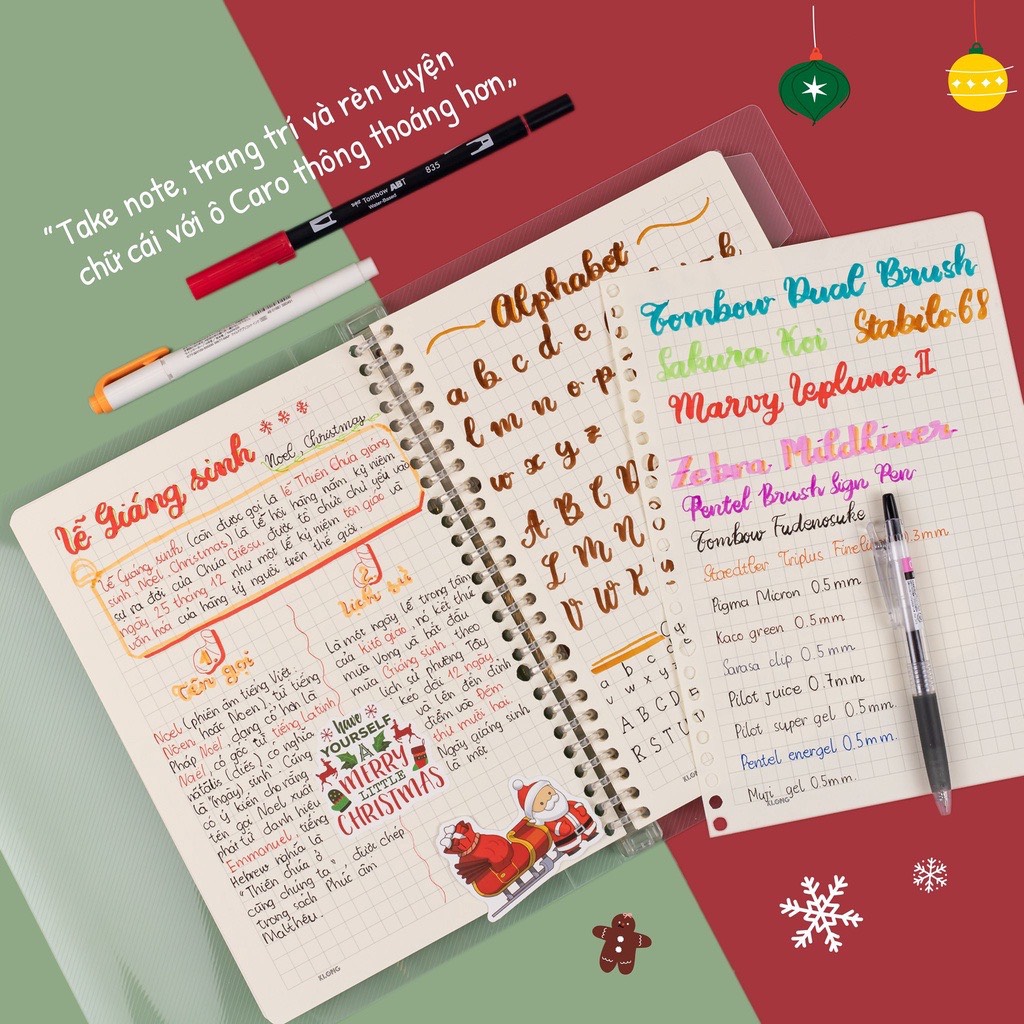 “Take note, trang trí và rèn luyện
chữ cái với ô Caro thông thoáng hơn„
Tombow ABT
Water-Based
835
Lễ Giáng sinh
Noel, Christmas
Lễ Giáng sinh (còn được gọi là lễ Thiên Chúa giáng
sinh, Noel, Christmas) là lễ hội hàng năm kỷ niệm
sự ra đời của Chúa Giêsu, được tổ chức chủ yếu vào
ngày 25 tháng 12 như một lễ kỷ niệm tôn giáo và
văn hóa của hàng tỷ người trên thế giới.
1.
Tên gọi
Noel (phiên âm tiếng Việt:
Nôen hoặc Noen), từ tiếng
Pháp Noël, dạng cổ hơn là
Naël, có gốc từ tiếng Latinh
natālis (diēs) có nghĩa
là "(ngày) sinh". Cũng
có ý kiến cho rằng
tên gọi Noel xuất
phát từ danh hiệu
Emmanuel, tiếng
Hebrew nghĩa là
"Thiên chúa ở
cùng chúng ta", được chép
trong sách Phúc âm
Matthêu.
Lịch sử
Là một ngày lễ trọng tâm
của Kitô giáo, nó kết thúc
mùa Vọng và bắt đầu
mùa Giáng sinh, theo
lịch sử phương Tây
kéo dài 12 ngày
và lên đến đỉnh
điểm vào Đêm
thứ mười hai.
Ngày Giáng sinh
là một
have
YOURSELF
A
MERRY
LITTLE
CHRISTMAS
KLONG
Alphabet
a b c d e
l m n o p
w x y z
A B C D
L M N
V W X
a b c
w x y z
A B C D
R S T U
KLONG
Tombow Dual Brush
Sakura Koi Stabilo 68
Marvy Leplume II
Zebra Mildliner
Pentel Brush Sign Pen
Tombow Fudenosuke
Staedtler Triplus Fineli 0.3mm
Pigma Micron 0.5mm
Kaco green 0.5mm
Sarasa clip 0.5mm
Pilot juice 0.7mm
Pilot super gel 0.5mm
Pentel energel 0.5mm.
Muji gel 0.5mm.
KLONG